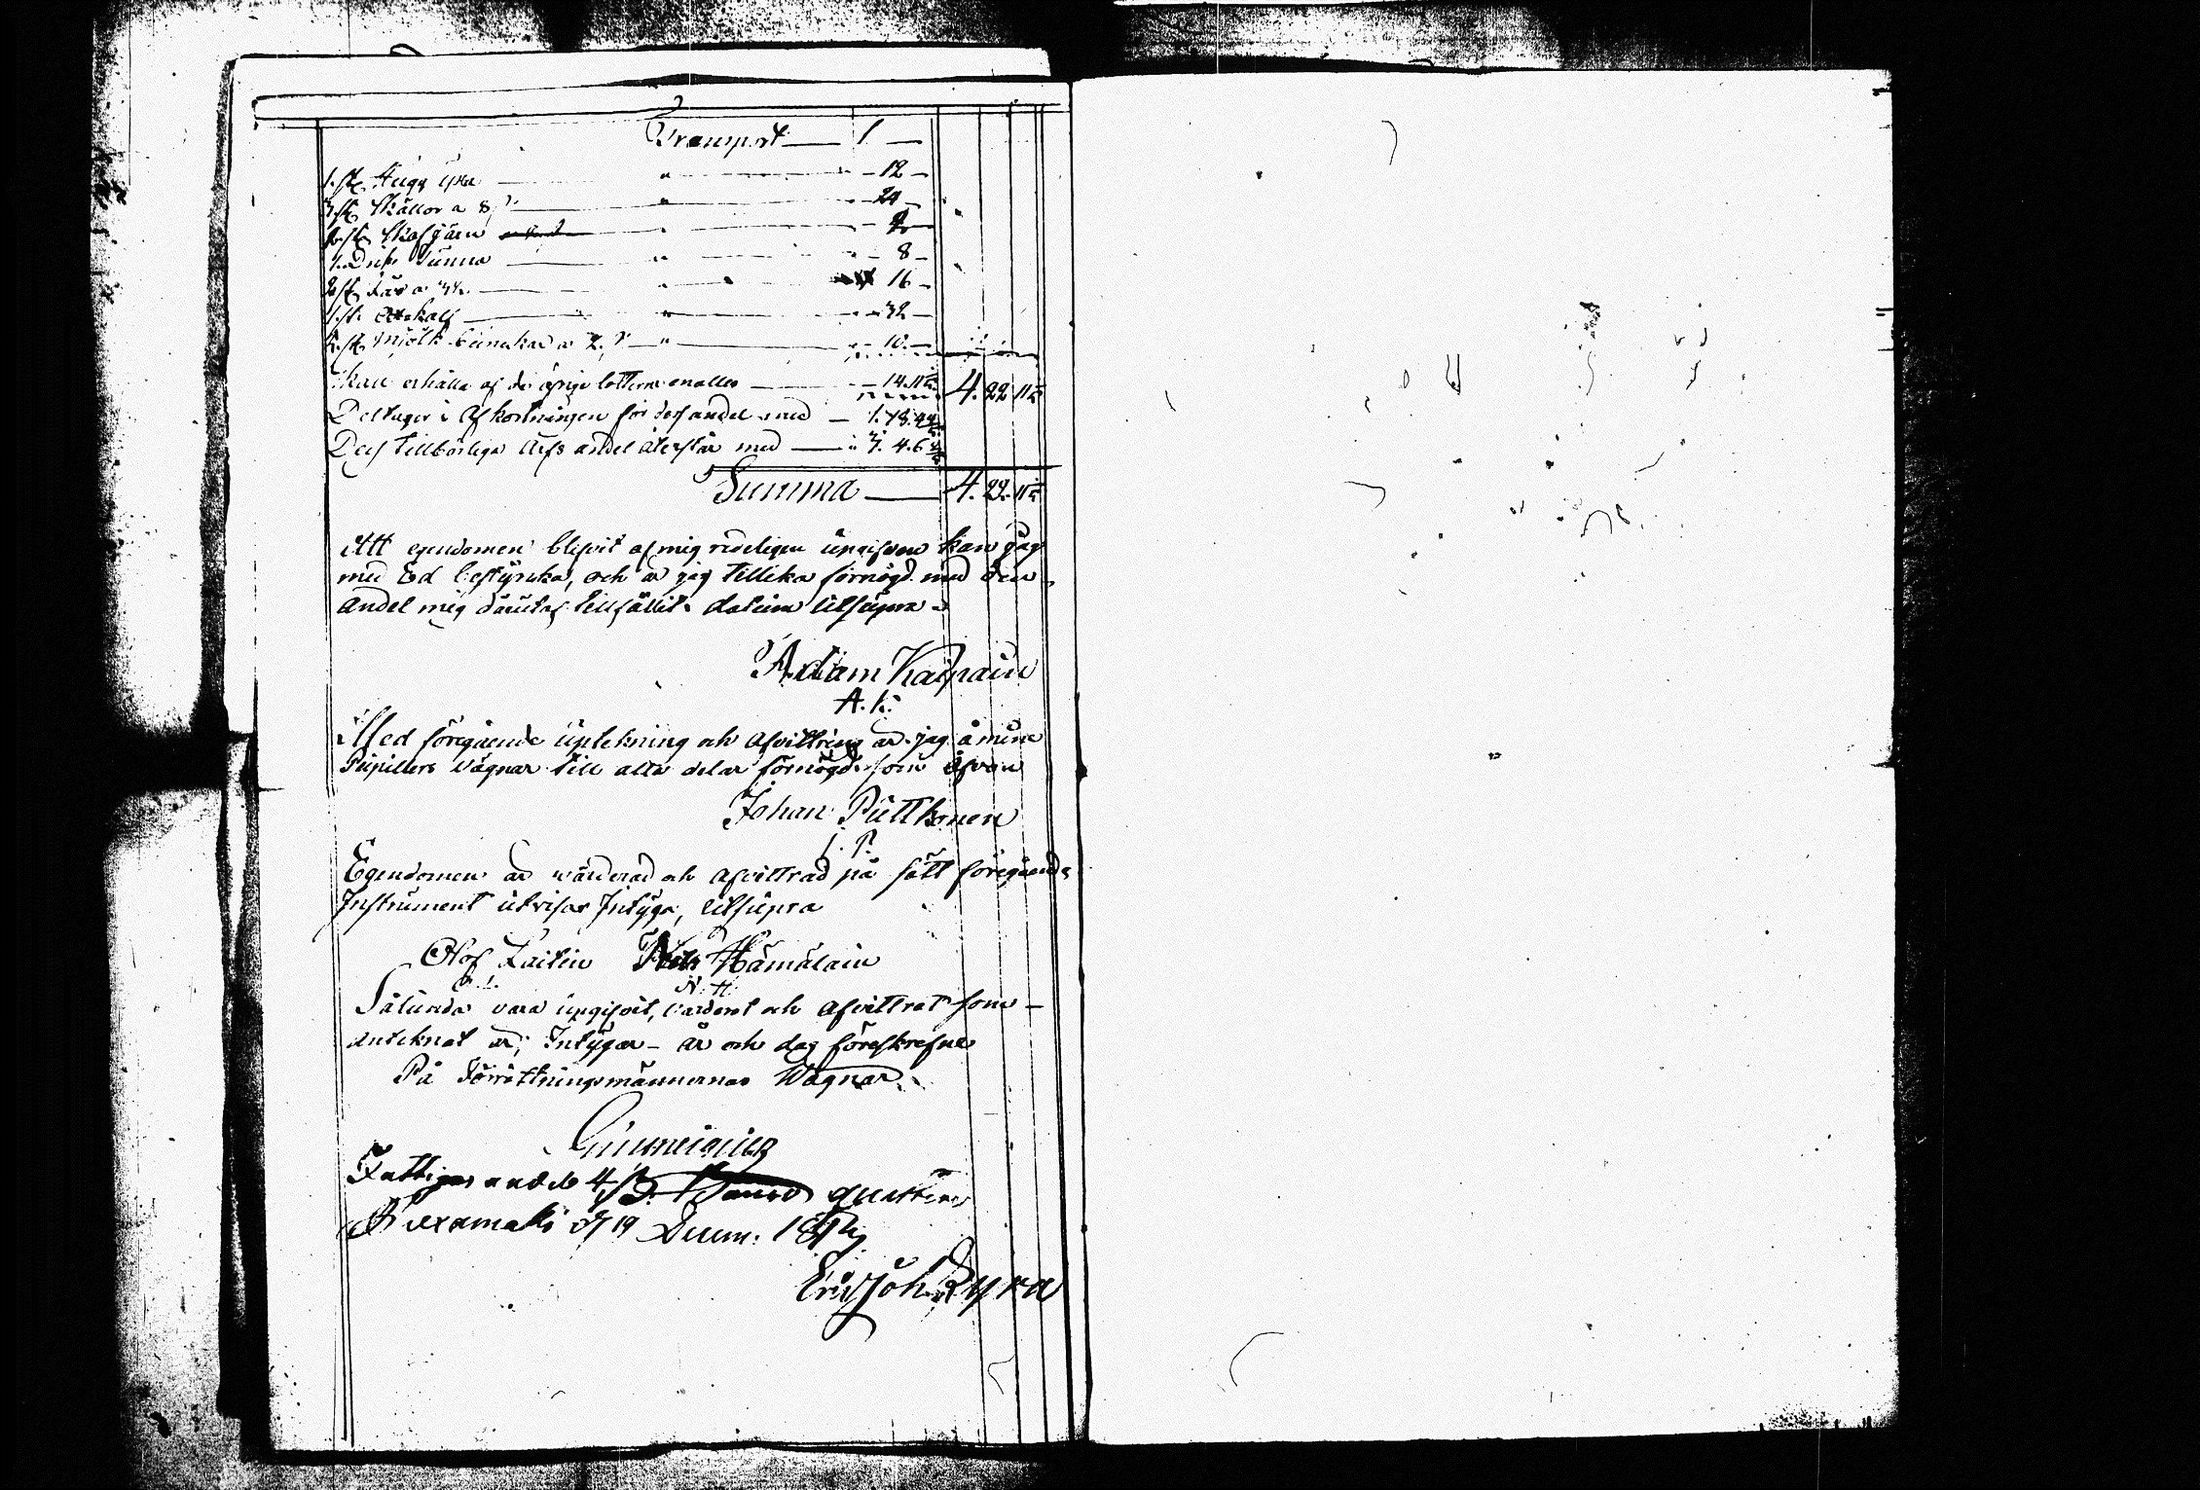 Transport — 1 —
1. st. Hugg yxa — " — 12 —
3 st. skällor a 8 — " — 24 —
st. skafjärn — " —
1. Dricks Tunna — " — 8 —
2 st. Får a — " — 16 —
1. st. Oxekalf — " — 32 —
5. st. mjölk bunckar a 2. — " — 10. —
Skall erhålla af de öfrige lotterne enalles — 14.11 4. 22 11
Deltager i Afkortningen för dess andel med — 1. 18.
Dess tillbörliga Arfs andel återstår med — 3. 4. 6
Summa — 4. 22. 11
Att egendomen blifvit af mig redeligen uppgifven kan jag
med Ed bestyrcka, och är jag tillika förnögd med den
andel mig därutaf tillfallit. datum utsupra.
Adam Kaipain
A. K.
Med föregående Upptekning och Afvittring är jag å mine
Pupillers vägnar till alla delar förnögd. som ofvan
Johan Puttkonen
I. P.
Egendomen är wärderad och afvittrad på sätt föregående
Instrument utvisar Intyga, utsupra
Olof Laitin Nils Hämäläin
O. L. N. H.
Sålunda vara uppgifvit, värderat och afvittrat som
antecknat är; Intygar — år och dag föreskrefne
På Förrättningsmännernas Wägnar.
Fattiges andel 4 quitteras
d 19 Decem.
Eric Joh.